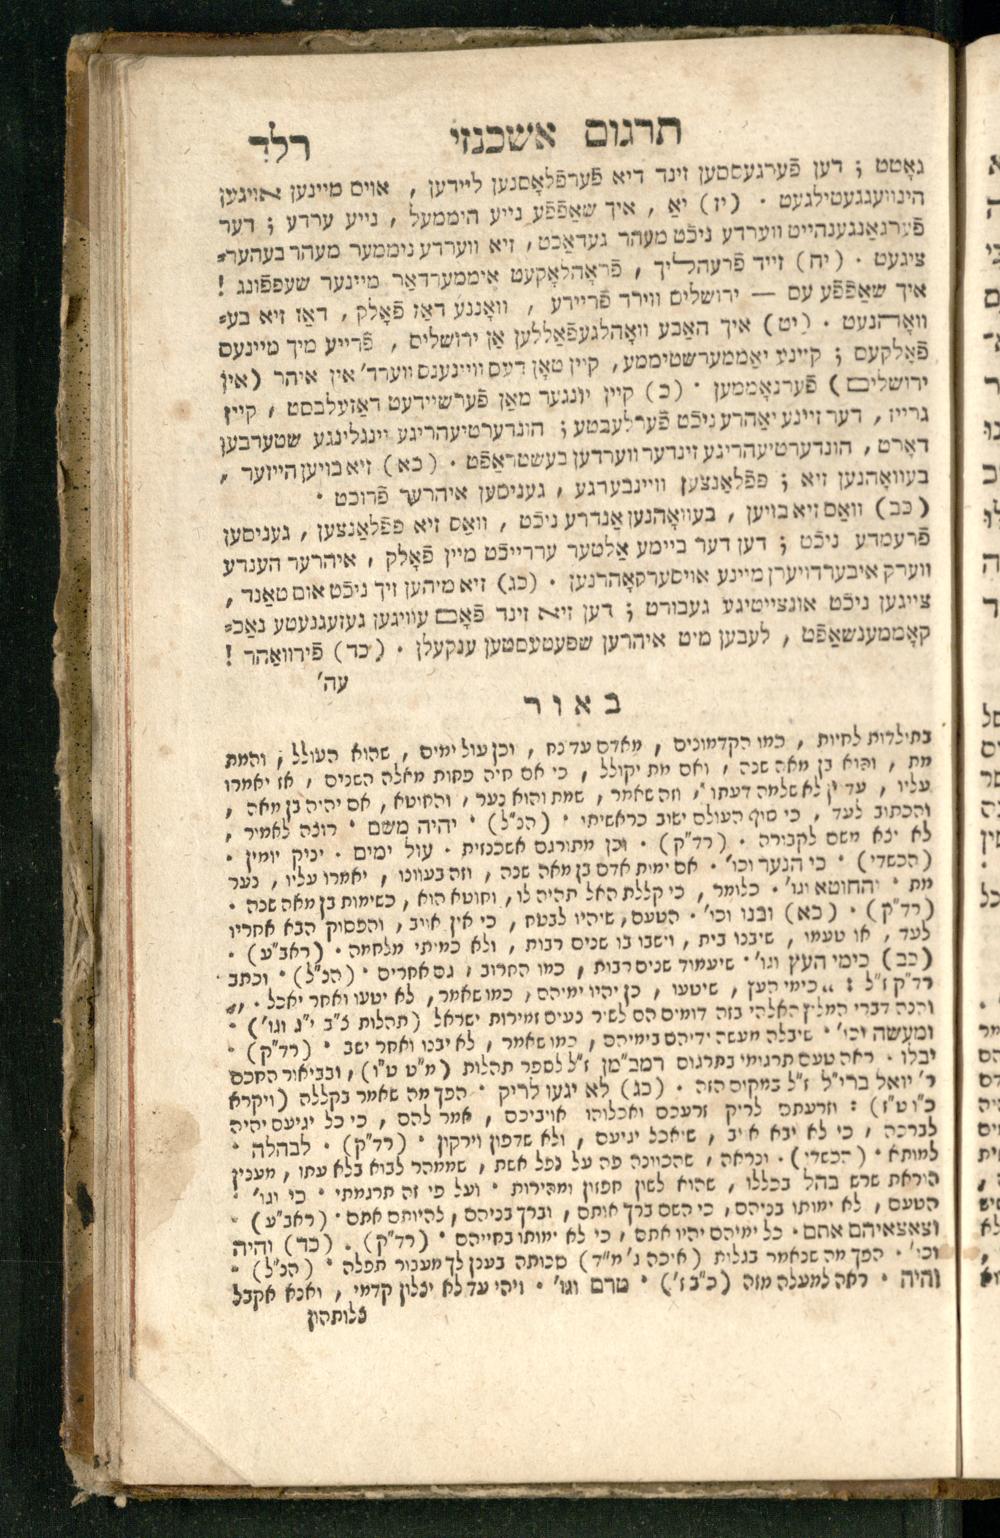 תרגום אשכנזי רלד
גאָטט ; דען פֿערגעססען זינד דיא פֿערפֿלאָסנען ליידען , אויס מיינען אויגען
הינוועגגעטילגעט . (יז) יאַ , איך שאַפֿפֿע נייע היממעל , נייע ערדע ; דער
פֿערגאַנגענהייט ווערדע ניכֿט מעהר געדאַכֿט, זיא ווערדע ניממער מעהר בעהער=
ציגעט . (יח) זייד פֿרעהליך , פֿראָהלאָקעט איממערדאר מיינער שעפפֿונג !
איך שאַפֿפֿע עס — ירושלים ווירד פֿריידע , וואָננע דאז פֿאָלק , דאז זיא בע=
וואָהנעט . (יט) איך האַבע וואָהלגעפֿאַללען אַן ירושלים , פֿרייע מיך מיינעס
פֿאָלקעס ; קיינע יאַממערשטיממע, קיין טאָן דעס וויינענס ווערד' אין איהר (אין
ירושלים) פֿערנאָממען . (כ) קיין יונגער מאַן פֿערשיידעט דאזעלבסט , קיין
גרייז , דער זיינע יאַהרע ניכֿט פֿערלעבטע ; הונדערטיעהריגע יינגלינגע שטערבען
דאָרט , הונדערטיעהריגע זינדער ווערדען בעשטראַפֿט . (כא) זיא בויען הייזער ,
בעוואָהנען זיא ; פפֿלאַנצען וויינבערגע , געניסען איהרער פֿרוכט .
(כב) וואַס זיא בויען , בעוואָהנען אַנדרע ניכֿט , וואַס זיא פפֿלאַנצען , געניסען
פֿרעמדע ניכֿט ; דען דער ביימע אַלטער עררייכֿט מיין פֿאָלק , איהרער הענדע
ווערק איבערדויערן מיינע אויסערקאָהרנען . (כג) זיא מיהען זיך ניכֿט אום טאַנד ,
צייגען ניכֿט אונצייטיגע געבורט ; דען זיא זינד פֿאָם עוויגען געזעגנעטע נאַכֿ=
קאָממענשאַפֿט , לעבען מיט איהרען שפעטעסטען ענקעלן . (כד) פֿירוואַהר !
עה'
באור
בתולדות לחיות , כמו הקדמונים , מאדם עד נח , וכן עול ימים , שהוא העולל ; והמת
מת , והוא בן מאה שנה , ואם מת יקולל , כי אם חיה פחות מאלה השנים , אז יאמרו
עליו , עדיין לא שלמה דעתו , וזה שאמר , שמת והוא נער , והחוטא , אם יהיה בן מאה ,
והכתוב לעד , כי סוף העולם ישוב כראשיתו . (הנ"ל) . יהיה משם . רוצה לאמיר ,
לא יצא משם לקבורה . (רד"ק) . וכן מתורגם אשכנזית . עול ימים . יניק יומין .
(הכשדי) . כי הנער וכו' . אם ימות אדם בן מאה שנה , וזה בעוונו , יאמרו עליו , נער
מת . והחוטא וגו' . כלומר , כי קללת האל תהיה לו , וחוטא הוא , כשימות בן מאה שנה .
(רד"ק) . (כא) ובנו וכו' . הטעם, שיהיו לבטח , כי אין אויב , והפסוק הבא אחריו
לעד , או טעמו , שיבנו בית , וישבו בו שנים רבות , ולא כמיתי מלחמה . (ראב"ע) .
(כב) כימי העץ וגו' . שיעמוד שנים רבות , כמו החרוב , גם אחרים . (הנ"ל) . וכתב
רד"ק ז"ל : „כימי העץ , שיטעו , כן יהיו ימיהם , כמו שאמר , לא יטעו ואחר יאכל . „
והנה דברי המליץ האלהי בזה דומים הם לשיר נעים זמירות ישראל (תהלות צ"ב י"ג וגו') .
ומעשה וכו' . שיבלה מעשה ידיהם בימיהם , כמו שאמר , לא יבנו ואחר ישב . (רד"ק) .
יבלו . ראה טעם תרגומי בתרגום רמב"מן ז"ל לספר תהלות (מ"ט ט"ו) , ובביאור החכם
ר' יואל ברי"ל ז"ל במקום הזה . (כג) לא יגעו לריק . הפך מה שאמר בקללה (ויקרא
כ"ו ט"ז) : וזרעתם לריק זרעכם ואכלוהו אויביכם , אמר להם , כי כל יגיעם יהיה
לברכה , כי לא יבא אויב , שיאכל יגיעם , ולא שדפון וירקון . (רד"ק) . לבהלה .
למותא . (הכשדי) . ונראה , שהכוונה פה על נפל אשת , שממהר לבוא בלא עתו , מענין
הוראת שרש בהל בכללו , שהוא לשון חפזון ומהירות . ועל פי זה תרגמתי . כי וגו' .
הטעם , לא ימותו בניהם , כי השם ברך אותם , וברך בניהם , להיותם אתם . (ראב"ע) .
וצאצאיהם אתם . כל ימיהם יהיו אתם , כי לא ימותו בחייהם . (רד"ק) . (כד) והיה
וכו' . הפך מה שנאמר בגלות (איכה ג' מ"ד) סכותה בענן לך מעבור תפלה . (הנ"ל) .
והיה . ראה למעלה מזה (כ"ב ז') . טרם וגו' . ויהי עד לא יצלון קדמי , ואנא אקבל
צלותהון